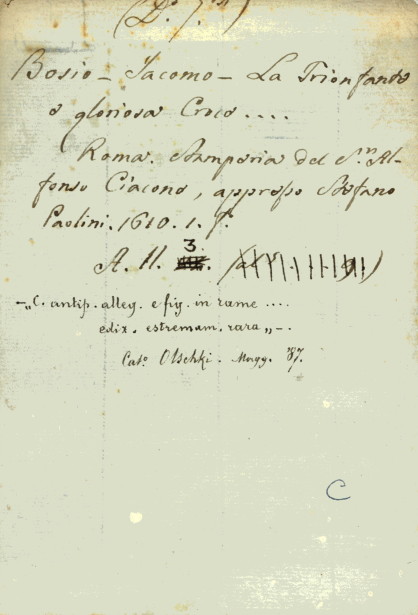 (D. 7.)
Bosio - Jacomo - La Trionfante
e gloriosa Croce ....
Roma. Stamperia del S.n Al-
fonso Ciacono, appresso Stefano
Paolini. 1610. 1. f.
A. 11. 3
-„C. antip. alleg. e fig. in rame ....
ediz. estremam. rara„-.
Cat.o Olschki. Magg. 87.
C